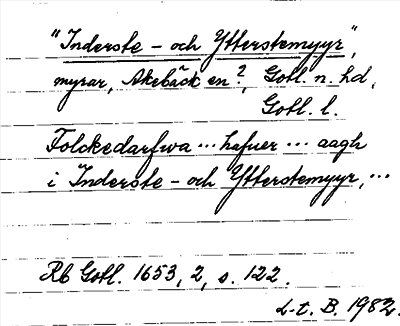 "Inderste - och Ytterstemyyr",
myrar, Akebäck en?, Gotl. n. hd,
Gotl. l.
Folckedarfwa ... hafuer ... aagh
i Inderste - och Ytterstemyyr, ...
Rb Gotl. 1653, 2, s. 122.
L-t. B. 1982.